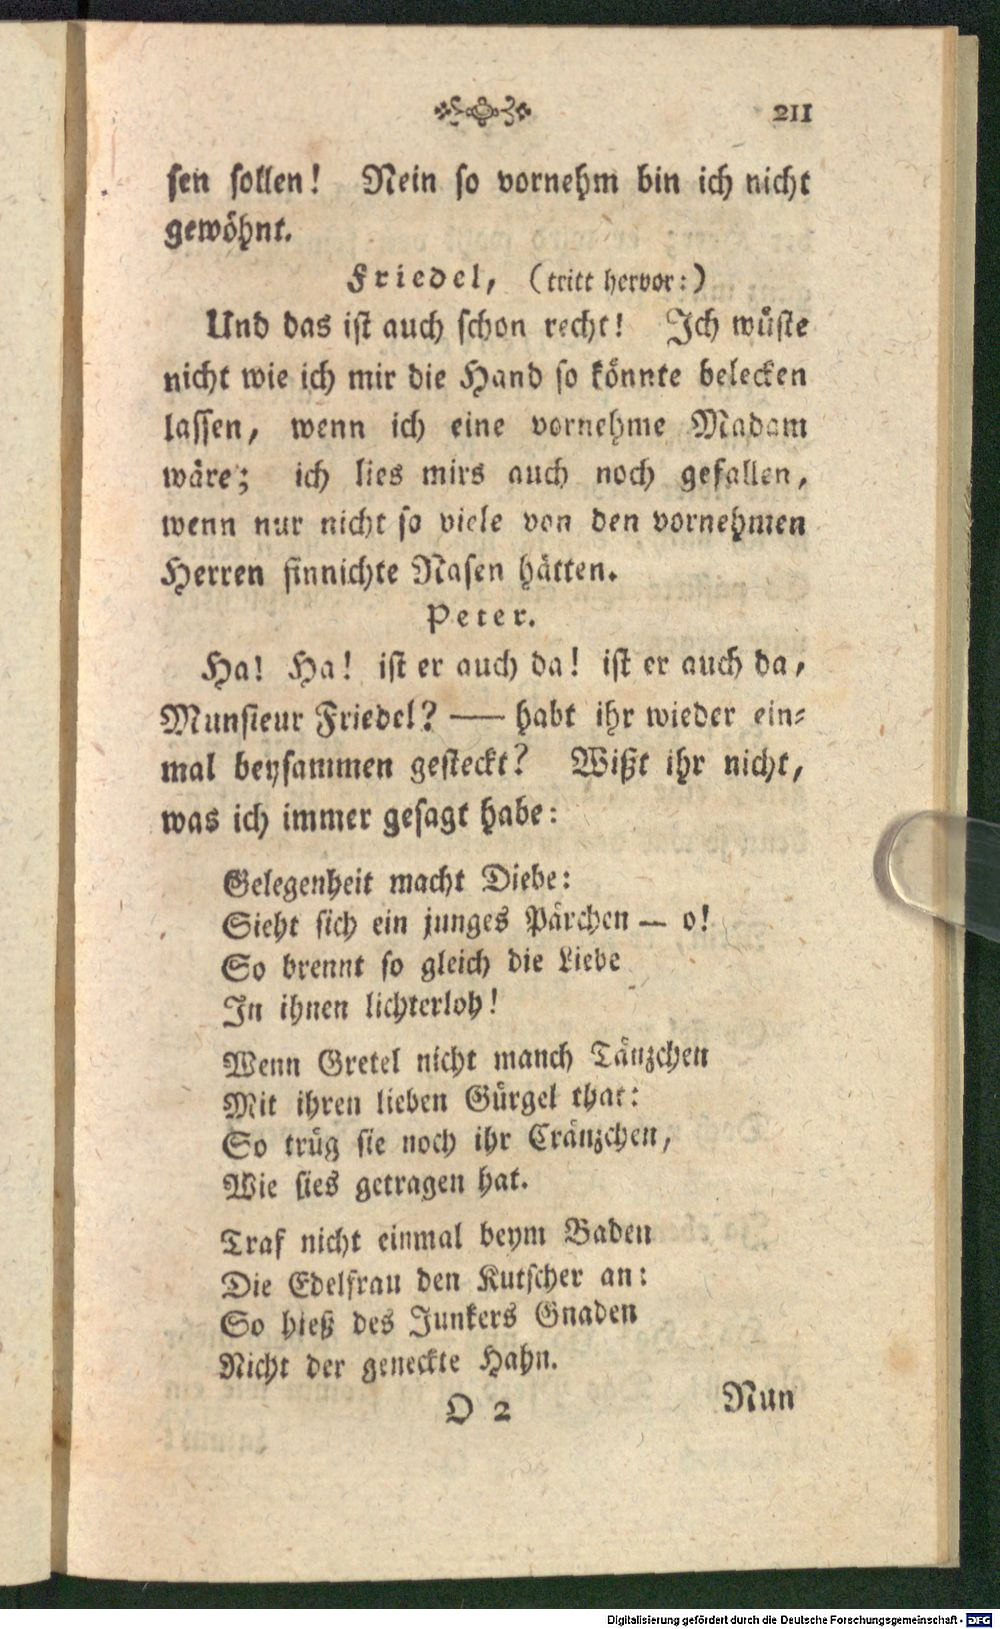 211
sen sollen! Nein so vornehm bin ich nicht
gewöhnt.
Friedel, (tritt hervor:)
Und das ist auch schon recht! Ich wüste
nicht wie ich mir die Hand so könnte belecken
lassen, wenn ich eine vornehme Madam
wäre; ich lies mirs auch noch gefallen,
wenn nur nicht so viele von den vornehmen
Herren finnichte Nasen hätten.
Peter.
Ha! Ha! ist er auch da! ist er auch da,
Munsieur Friedel? —— habt ihr wieder ein-
mal beysammen gesteckt? Wißt ihr nicht,
was ich immer gesagt habe:
Gelegenheit macht Diebe:
Sieht sich ein junges Pärchen — o!
So brennt so gleich die Liebe
In ihnen lichterloh!
Wenn Gretel nicht manch Tänzchen
Mit ihren lieben Gürgel that:
So trüg sie noch ihr Cränzchen,
Wie sies getragen hat.
Traf nicht einmal beym Baden
Die Edelfrau den Kutscher an:
So hieß des Junkers Gnaden
Nicht der geneckte Hahn.
O 2 Nun
Digitalisierung gefördert durch die Deutsche Forschungsgemeinschaft - DFG